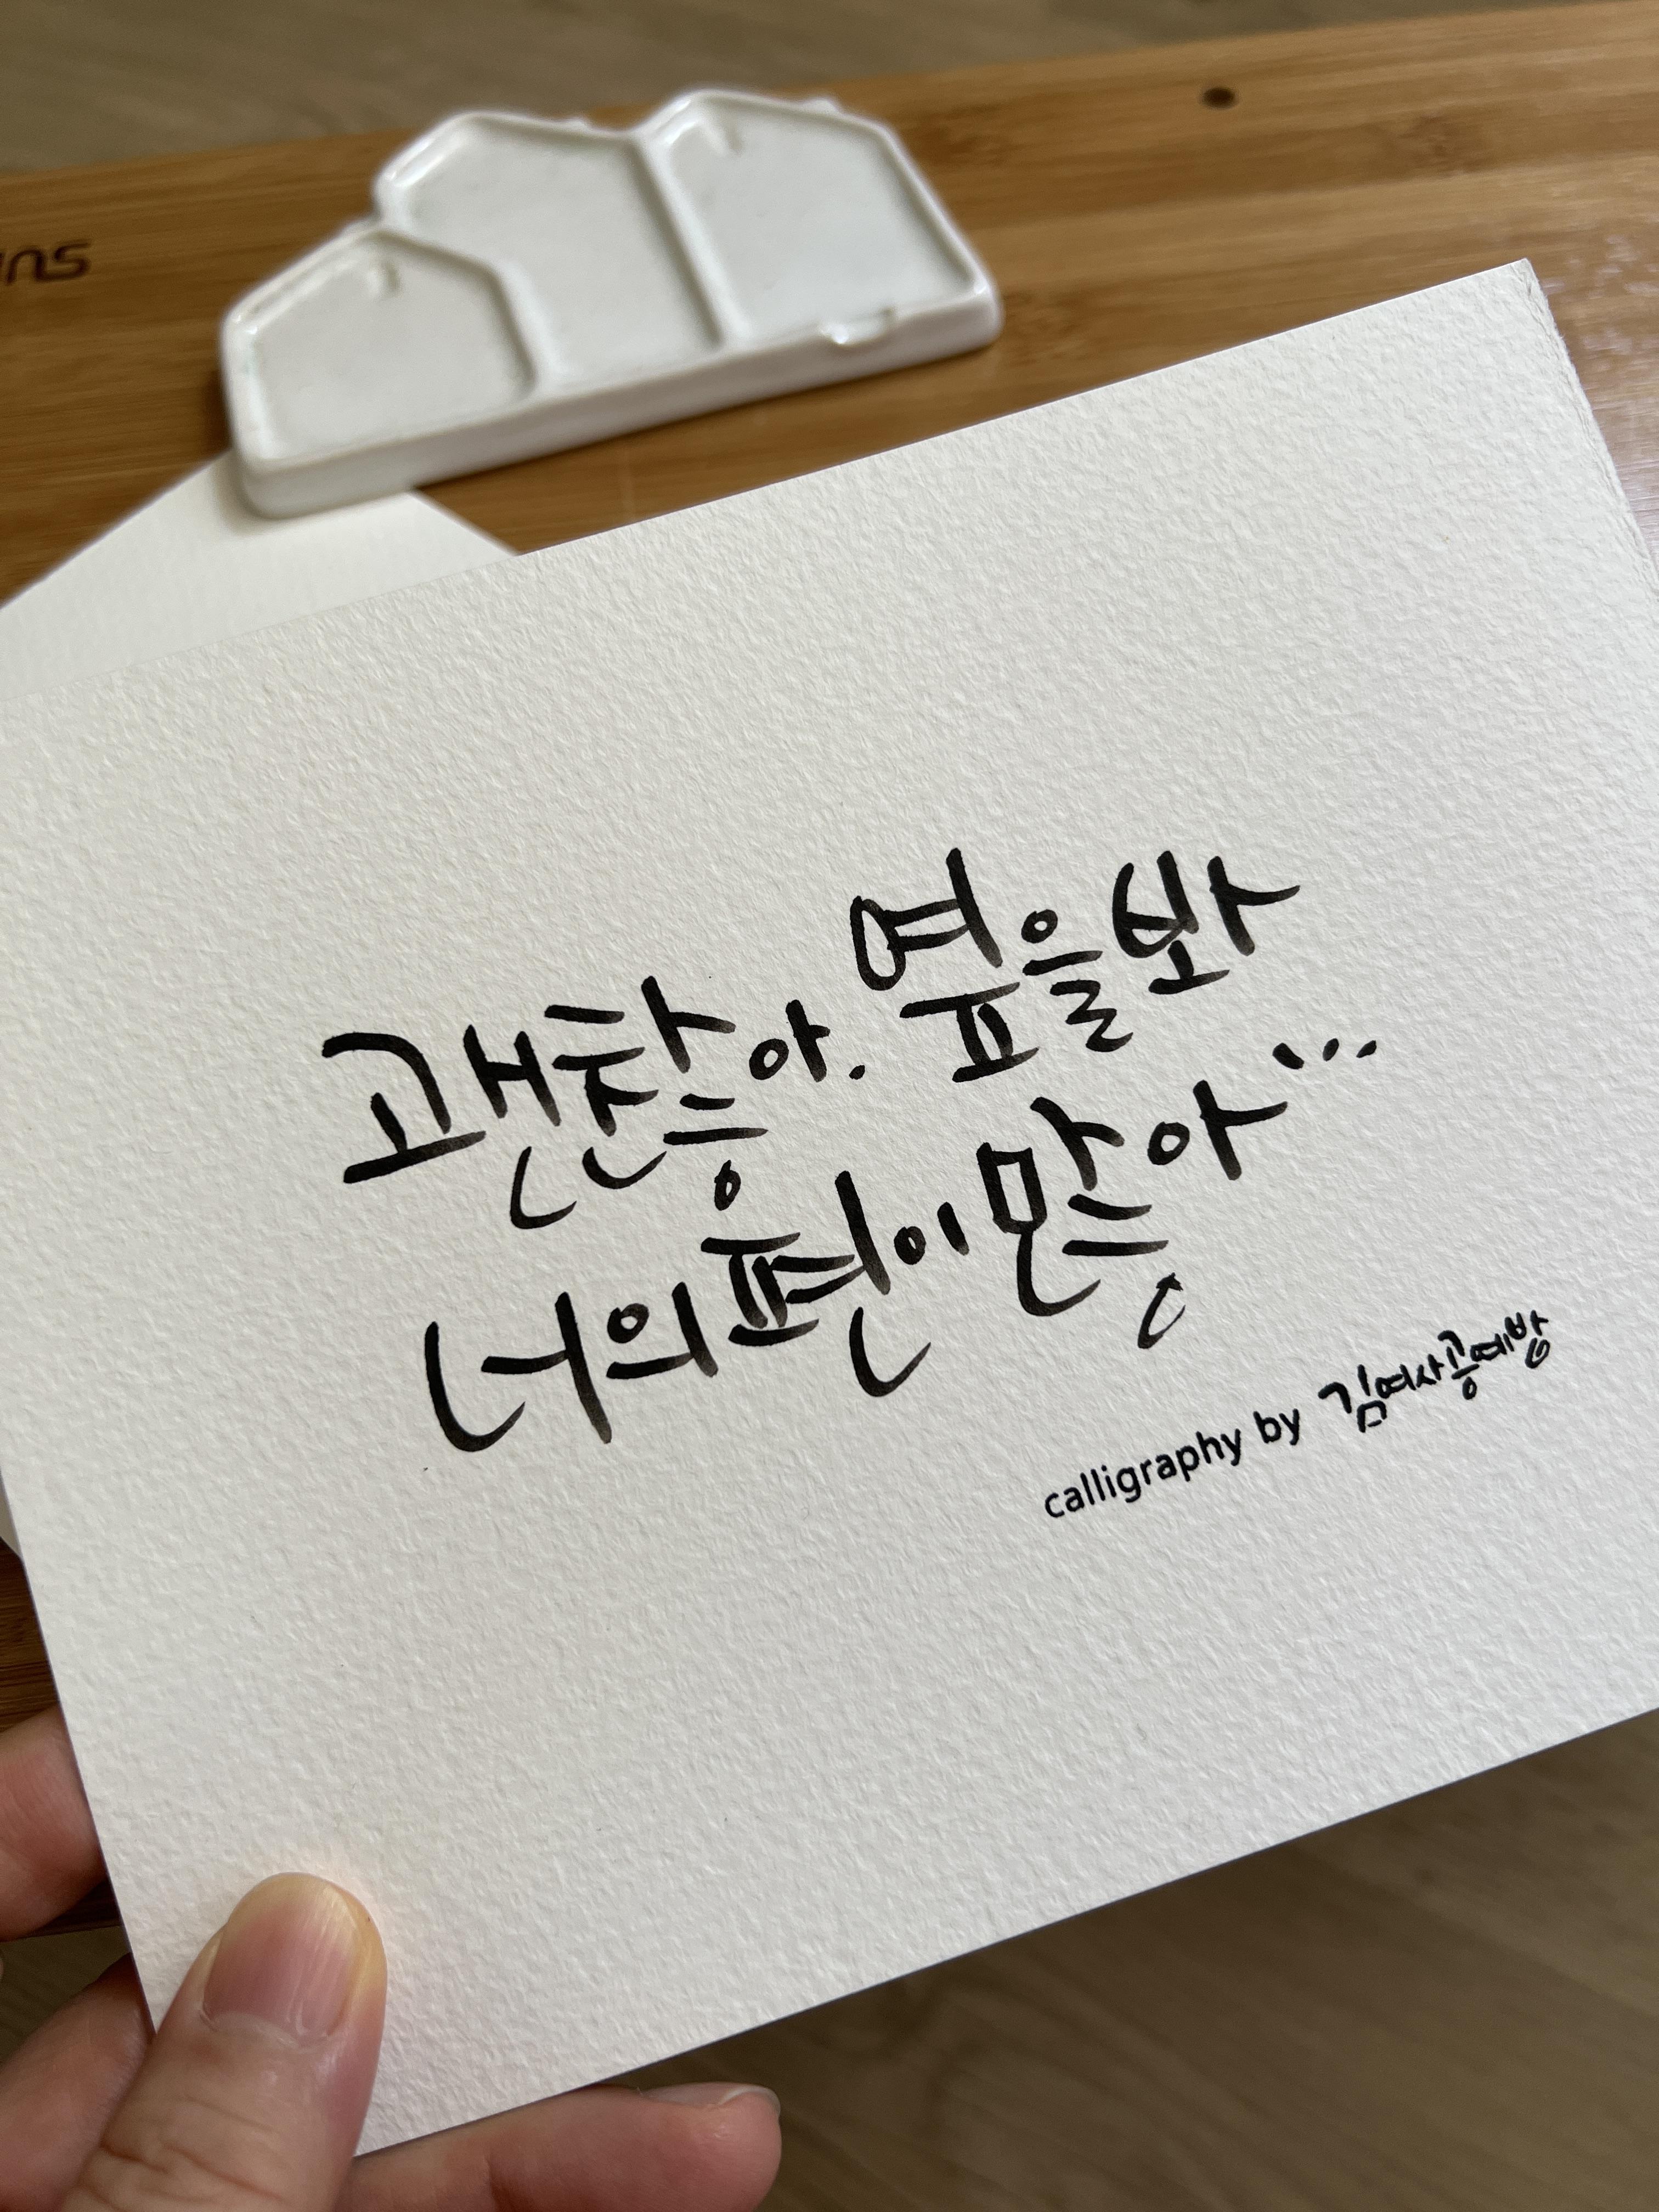 괜찮아. 옆을 봐
너의 편이 많아...
calligraphy by 김여사공예방